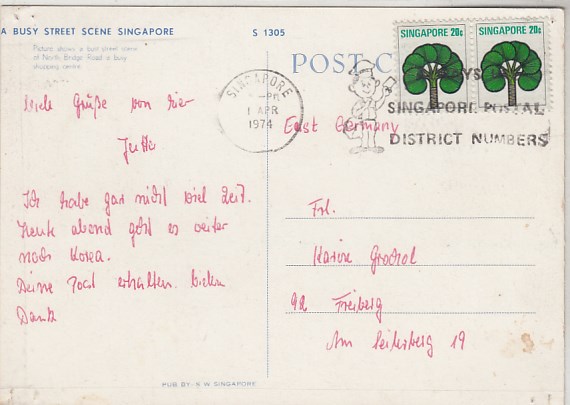 A BUSY STREET SCENE SINGAPORE
S 1305
Picture shows a busy street scene
of North Bridge Road a busy
shopping centre.
POST C
SINGAPORE 20c
SINGAPORE 20c
SINGAPORE
-PM
1 APR
1974
SINGAPORE POSTAL
DISTRICT NUMBERS
Viele Grüße von hier
Jutta
Ich habe gar nicht viel Zeit.
Heute abend geht es weiter
nach Korea.
Deine Post erhalten. Vielen
Dank
East Germany
Frl.
Karin
92 Freiberg
Am 19
PUB BY: S W SINGAPORE